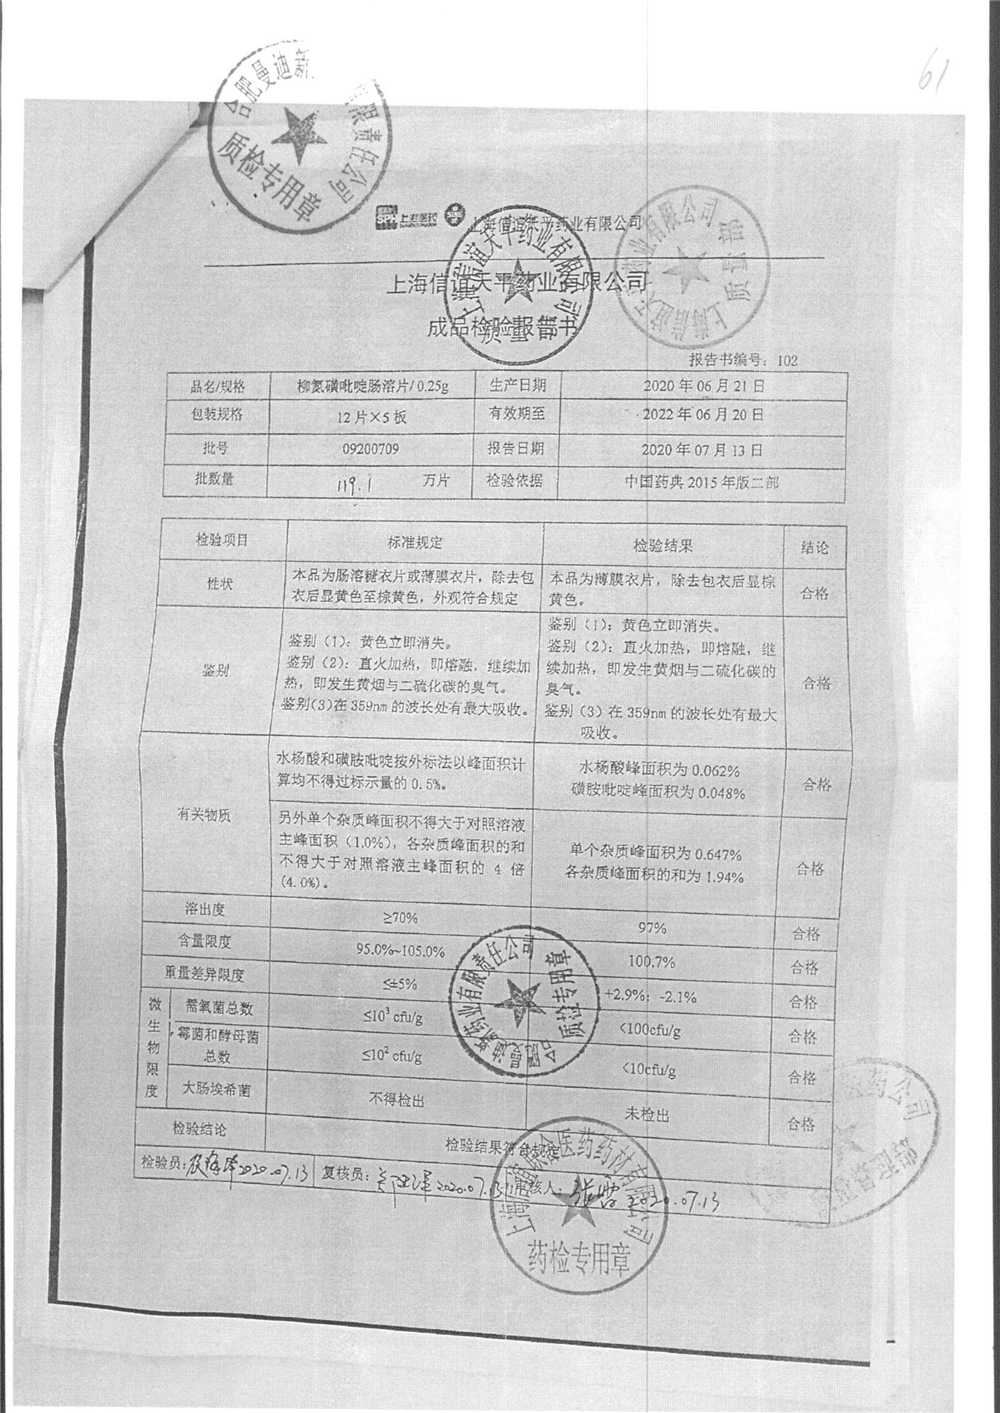 61
合肥曼迪新
有限责任公司
质检专用章
SPH 上海医药
上海信谊天平药业有限公司
上海信谊天平药业有限公司
成品检验报告书
上海信谊天平药业有限公司
质量部
上海信谊天平药业有限公司
质量部
报告书编号：102
品名/规格 柳氮磺吡啶肠溶片/0.25g 生产日期 2020年06月21日
包装规格 12片×5板 有效期至 2022年06月20日
批号 09200709 报告日期 2020年07月13日
批数量 119.1 万片 检验依据 中国药典2015年版二部
检验项目 标准规定 检验结果 结论
性状 本品为肠溶糖衣片或薄膜衣片，除去包衣后显黄色至棕黄色，外观符合规定 本品为薄膜衣片，除去包衣后显棕黄色。 合格
鉴别
鉴别（1）：黄色立即消失。
鉴别（2）：直火加热，即熔融，继续加
热，即发生黄烟与二硫化碳的臭气。
鉴别(3)在359nm的波长处有最大吸收。
鉴别（1）：黄色立即消失。
鉴别（2）：直火加热，即熔融，继
续加热，即发生黄烟与二硫化碳的
臭气。
鉴别（3）在359nm的波长处有最大
吸收。
合格
有关物质
水杨酸和磺胺吡啶按外标法以峰面积计
算均不得过标示量的0.5%。
水杨酸峰面积为0.062%
磺胺吡啶峰面积为0.048%
合格
另外单个杂质峰面积不得大于对照溶液
主峰面积（1.0%），各杂质峰面积的和
不得大于对照溶液主峰面积的4倍
(4.0%)。
单个杂质峰面积为0.647%
各杂质峰面积的和为1.94%
合格
溶出度 ≥70% 97% 合格
含量限度 95.0%~105.0% 100.7% 合格
重量差异限度 ≤±5% +2.9%；-2.1% 合格
微生物限度
需氧菌总数 ≤10³cfu/g <100cfu/g 合格
霉菌和酵母菌总数 ≤10²cfu/g <10cfu/g 合格
大肠埃希菌 不得检出 未检出 合格
检验结论 检验结果符合规定
检验员： 2020.07.13 复核员： 2020.07.13 审核人： 2020.07.13
药业有限责任公司
质检专用章
医药药材有限公司
药检专用章